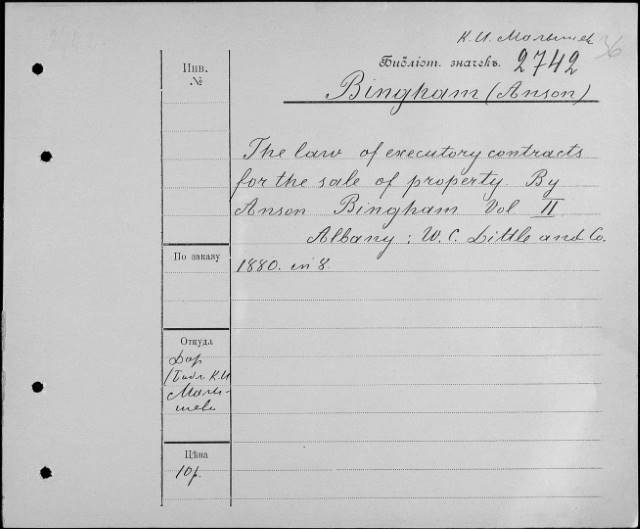 К. И. Малышев 36
Библіот. значекъ. 2742
Инв.
№
Bingham (Anson)
The law of executory contracts
for the sale of property. By
Anson Bingham Vol II
Albany: W. C. Little and Co.
По заказу
1880. in 8.
Откуда
Дар
(Библ К. И.
Малы-
шева
Цѣна
10 р.